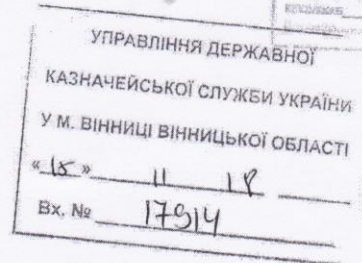 УПРАВЛІННЯ ДЕРЖАВНОЇ
КАЗНАЧЕЙСЬКОЇ СЛУЖБИ УКРАЇНИ
У М. ВІННИЦІ ВІННИЦЬКОЇ ОБЛАСТІ
«15» 11 18
Вх. № 17914